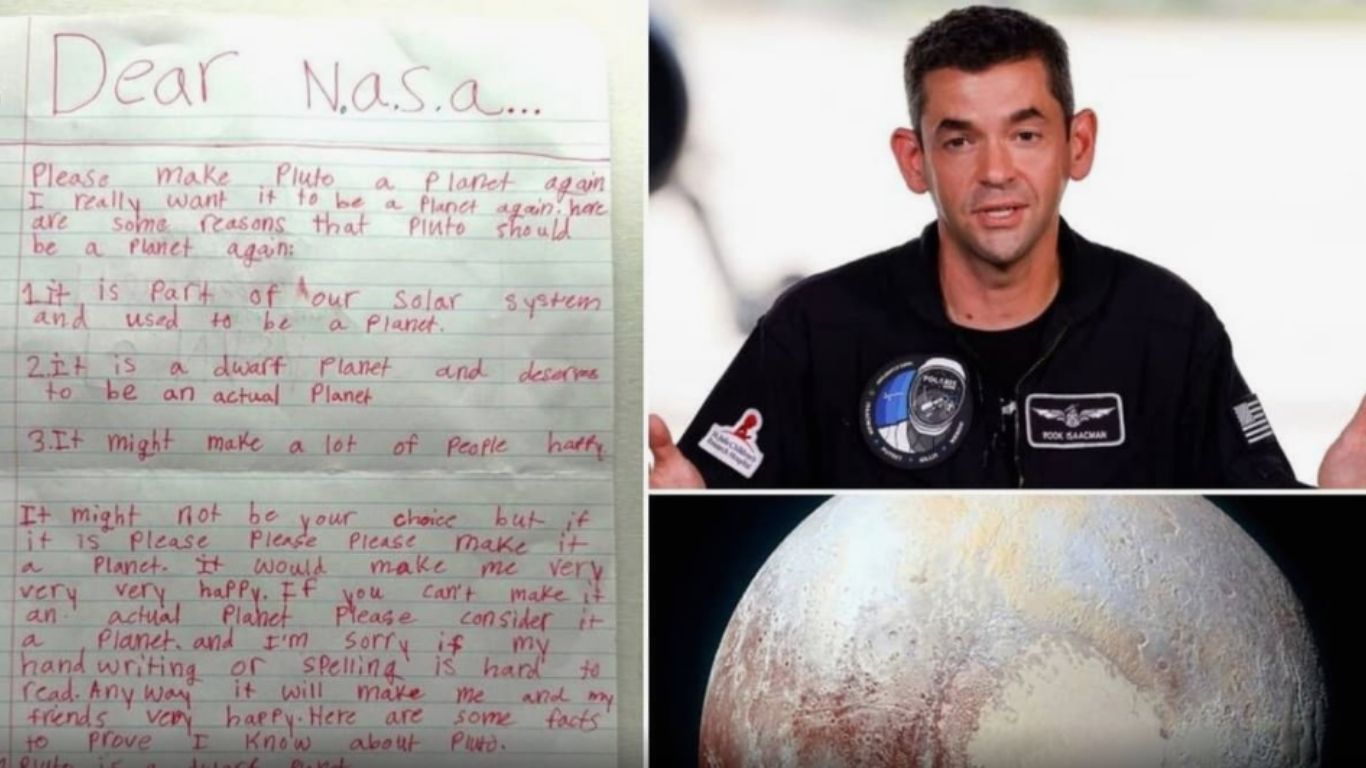 Dear N.a.s.a...
Please make Pluto a Planet again
I really want it to be a Planet again. here
are some reasons that Pluto should
be a Planet again:
1.it is Part of our solar system
and used to be a Planet.
2.It is a dwarf Planet and deserves
to be an actual Planet
3.It might make a lot of People happy
It might not be your choice but if
it is Please Please Please make it
a Planet. It would make me very
very very happy. If you can't make it
an actual Planet Please consider it
a Planet. and I'm sorry if my
hand writing or spelling is hard to
read. Any way it will make me and my
friends very happy. Here are some facts
to prove I know about Pluto.
Pluto is a dwarf
POLARIS
St. Jude Children's
Research Hospital
ROOK ISAACMAN